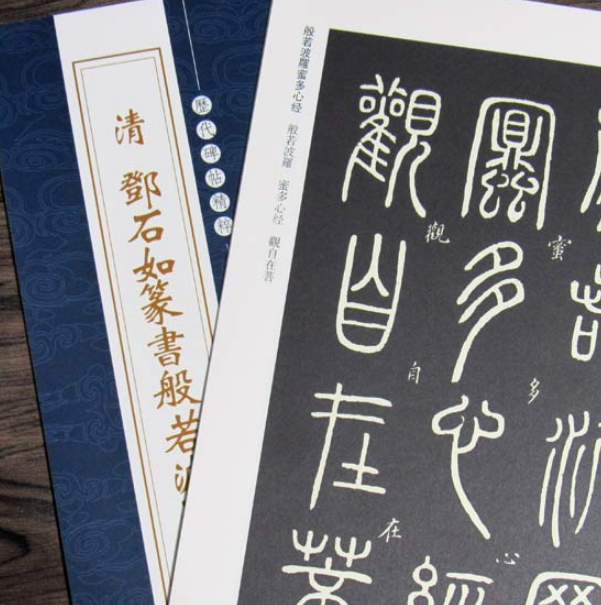 歷代碑帖精粹
清 鄧石如篆書般若波
般若波羅蜜多心经 般若波羅 蜜多心经 觀自在菩
蜜多心經
蜜多心
觀自在菩
觀自在